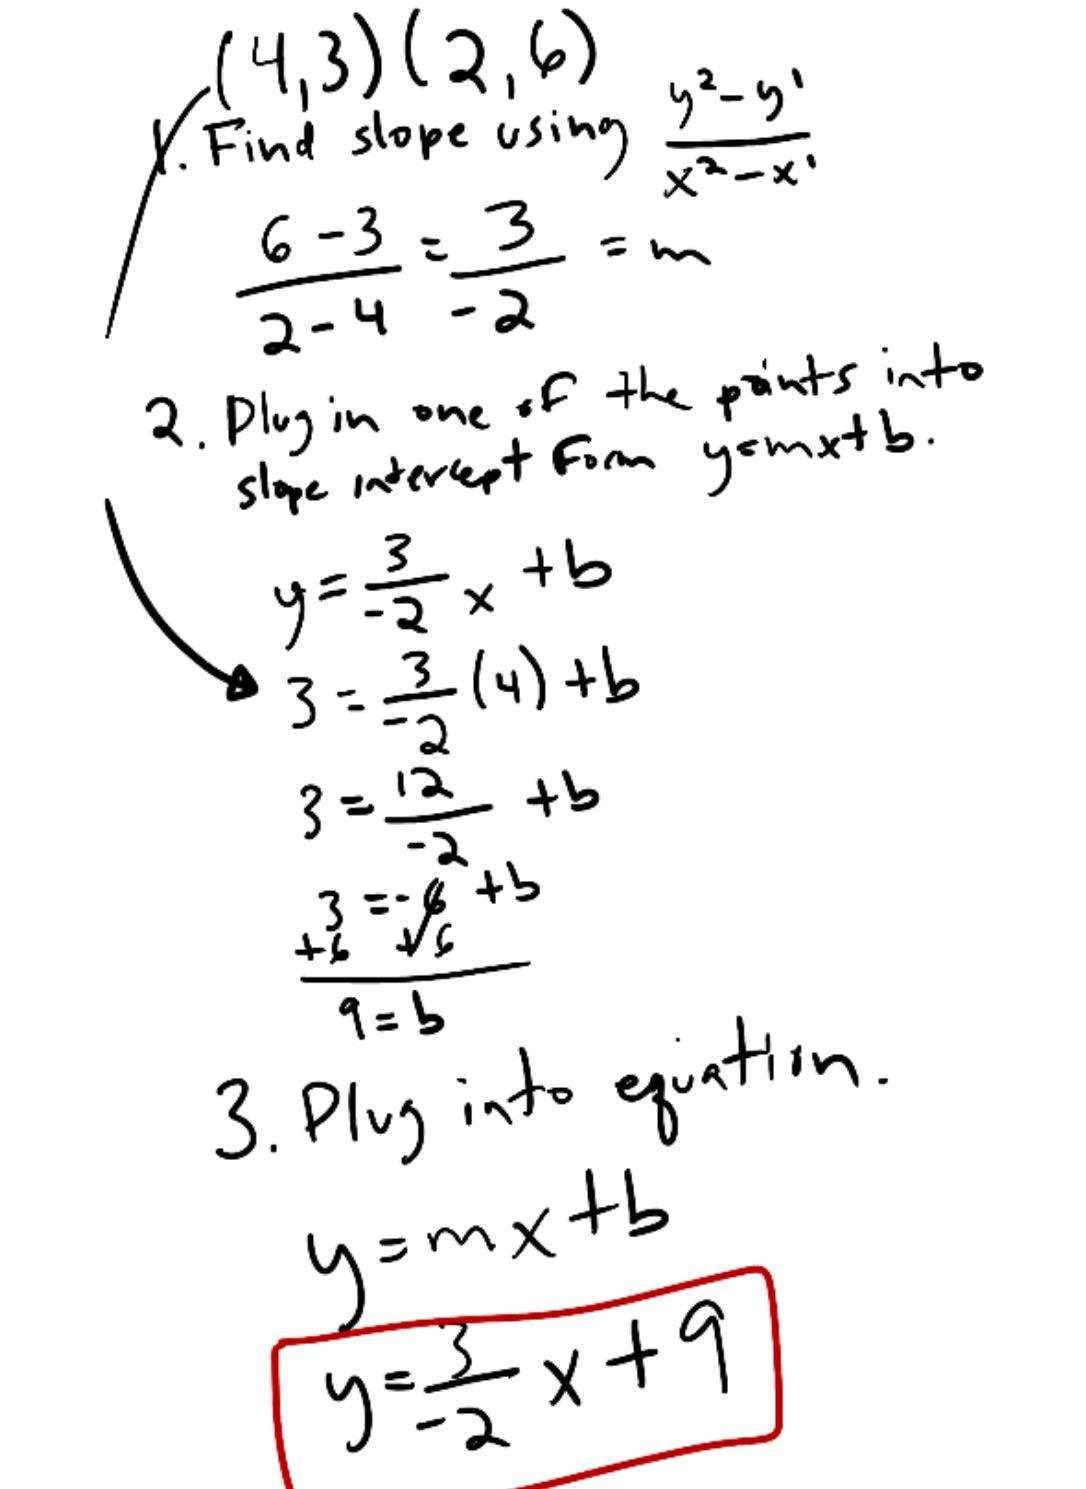 (4,3) (2,6)
1. Find slope using y²-y¹ / x²-x¹
6-3 / 2-4 = 3 / -2 = m
2. Plug in one of the points into
slope intercept form y=mx+b.
y = 3 / -2 x + b
3 = 3 / -2 (4) + b
3 = 12 / -2 + b
3 = -6 + b
+6 +6
9 = b
3. Plug into equation.
y = mx + b
y = 3 / -2 x + 9